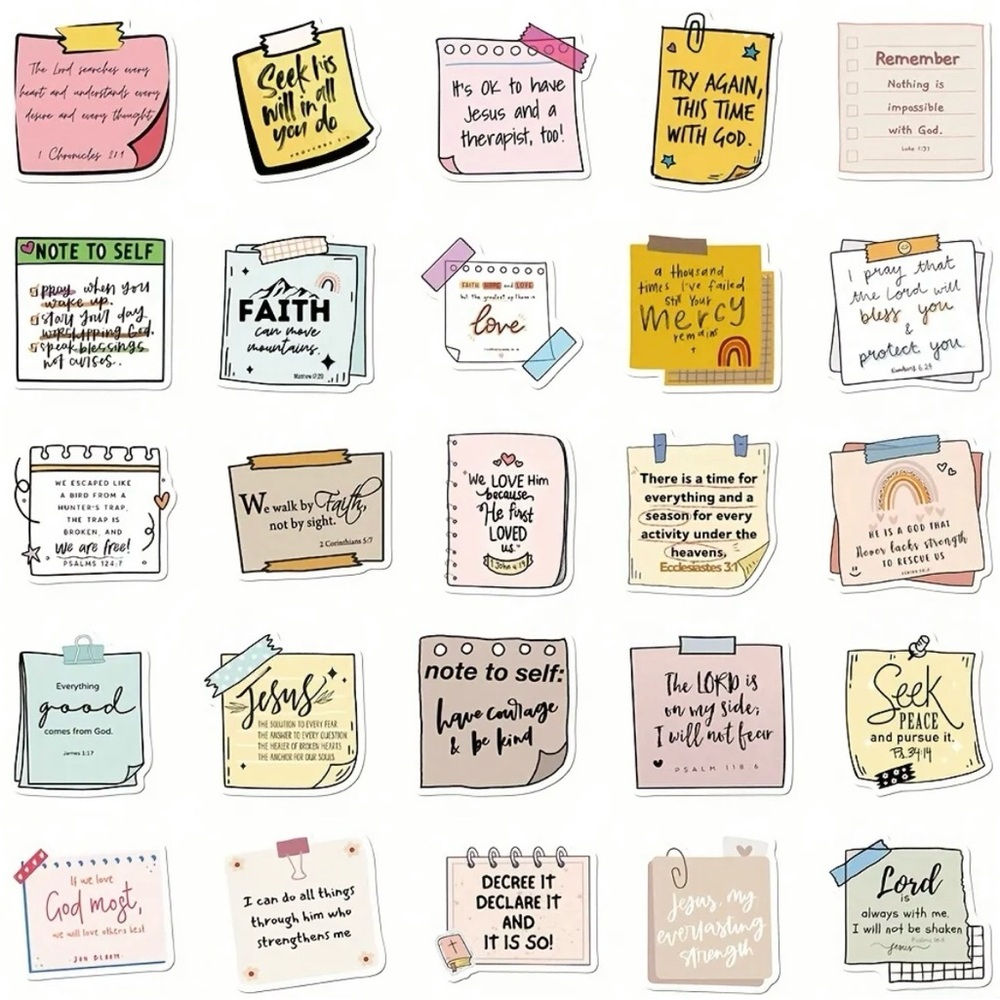 The Lord searches every
heart and understands every
desire and every thought
1 Chronicles 28:9
Seek his
will in all
you do
PROVERBS 3:6
It's OK to have
Jesus and a
therapist, too!
TRY AGAIN,
THIS TIME
WITH GOD.
Remember
Nothing is
impossible
with God.
Luke 1:37
NOTE TO SELF
pray when you
wake up.
start your day
worshipping God.
speak blessings
not curses.
FAITH
can move
mountains.
Matthew 17:20
FAITH HOPE and LOVE
but the greatest of these is
love
a thousand
times I've failed
still Your
Mercy
remains
I pray that
the Lord will
bless you
&
protect you
Numbers 6:24
WE ESCAPED LIKE
A BIRD FROM A
HUNTER'S TRAP,
THE TRAP IS
BROKEN, AND
we are free!
PSALMS 124:7
We walk by Faith,
not by sight.
2 Corinthians 5:7
We LOVE Him
because
He first
LOVED
us.
1 John 4:19
There is a time for
everything and a
season for every
activity under the
heavens.
Ecclesiastes 3:1
HE IS A GOD THAT
Never lacks strength
TO RESCUE US
Everything
good
comes from God.
James 1:17
Jesus
THE SOLUTION TO EVERY FEAR
THE ANSWER TO EVERY QUESTION
THE HEALER OF BROKEN HEARTS
THE ANCHOR FOR OUR SOULS
note to self:
have courage
& be kind
The LORD is
on my side;
I will not fear
PSALM 118:6
Seek
PEACE
and pursue it.
Ps. 34:14
If we love
God most,
we will love others best
-JON BLOOM-
I can do all things
through him who
strengthens me
DECREE IT
DECLARE IT
AND
IT IS SO!
Jesus, my
everlasting
strength
Lord
is
always with me.
I will not be shaken
Psalms 16:8
Jesus